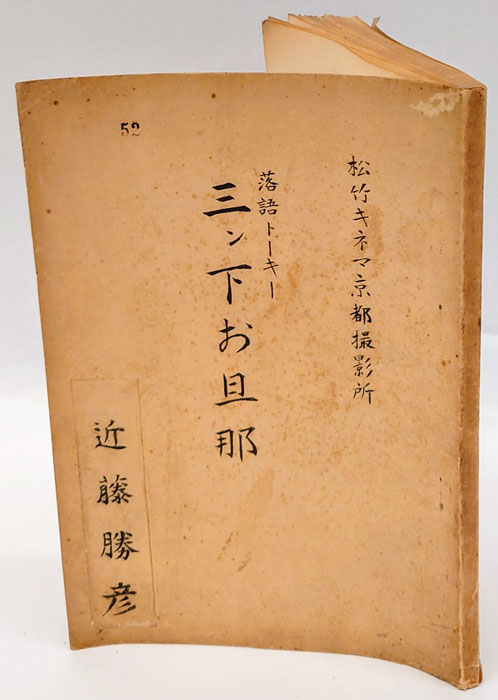 松竹キネマ京都撮影所
落語トーキー
三ン下お旦那
52
近藤勝彦